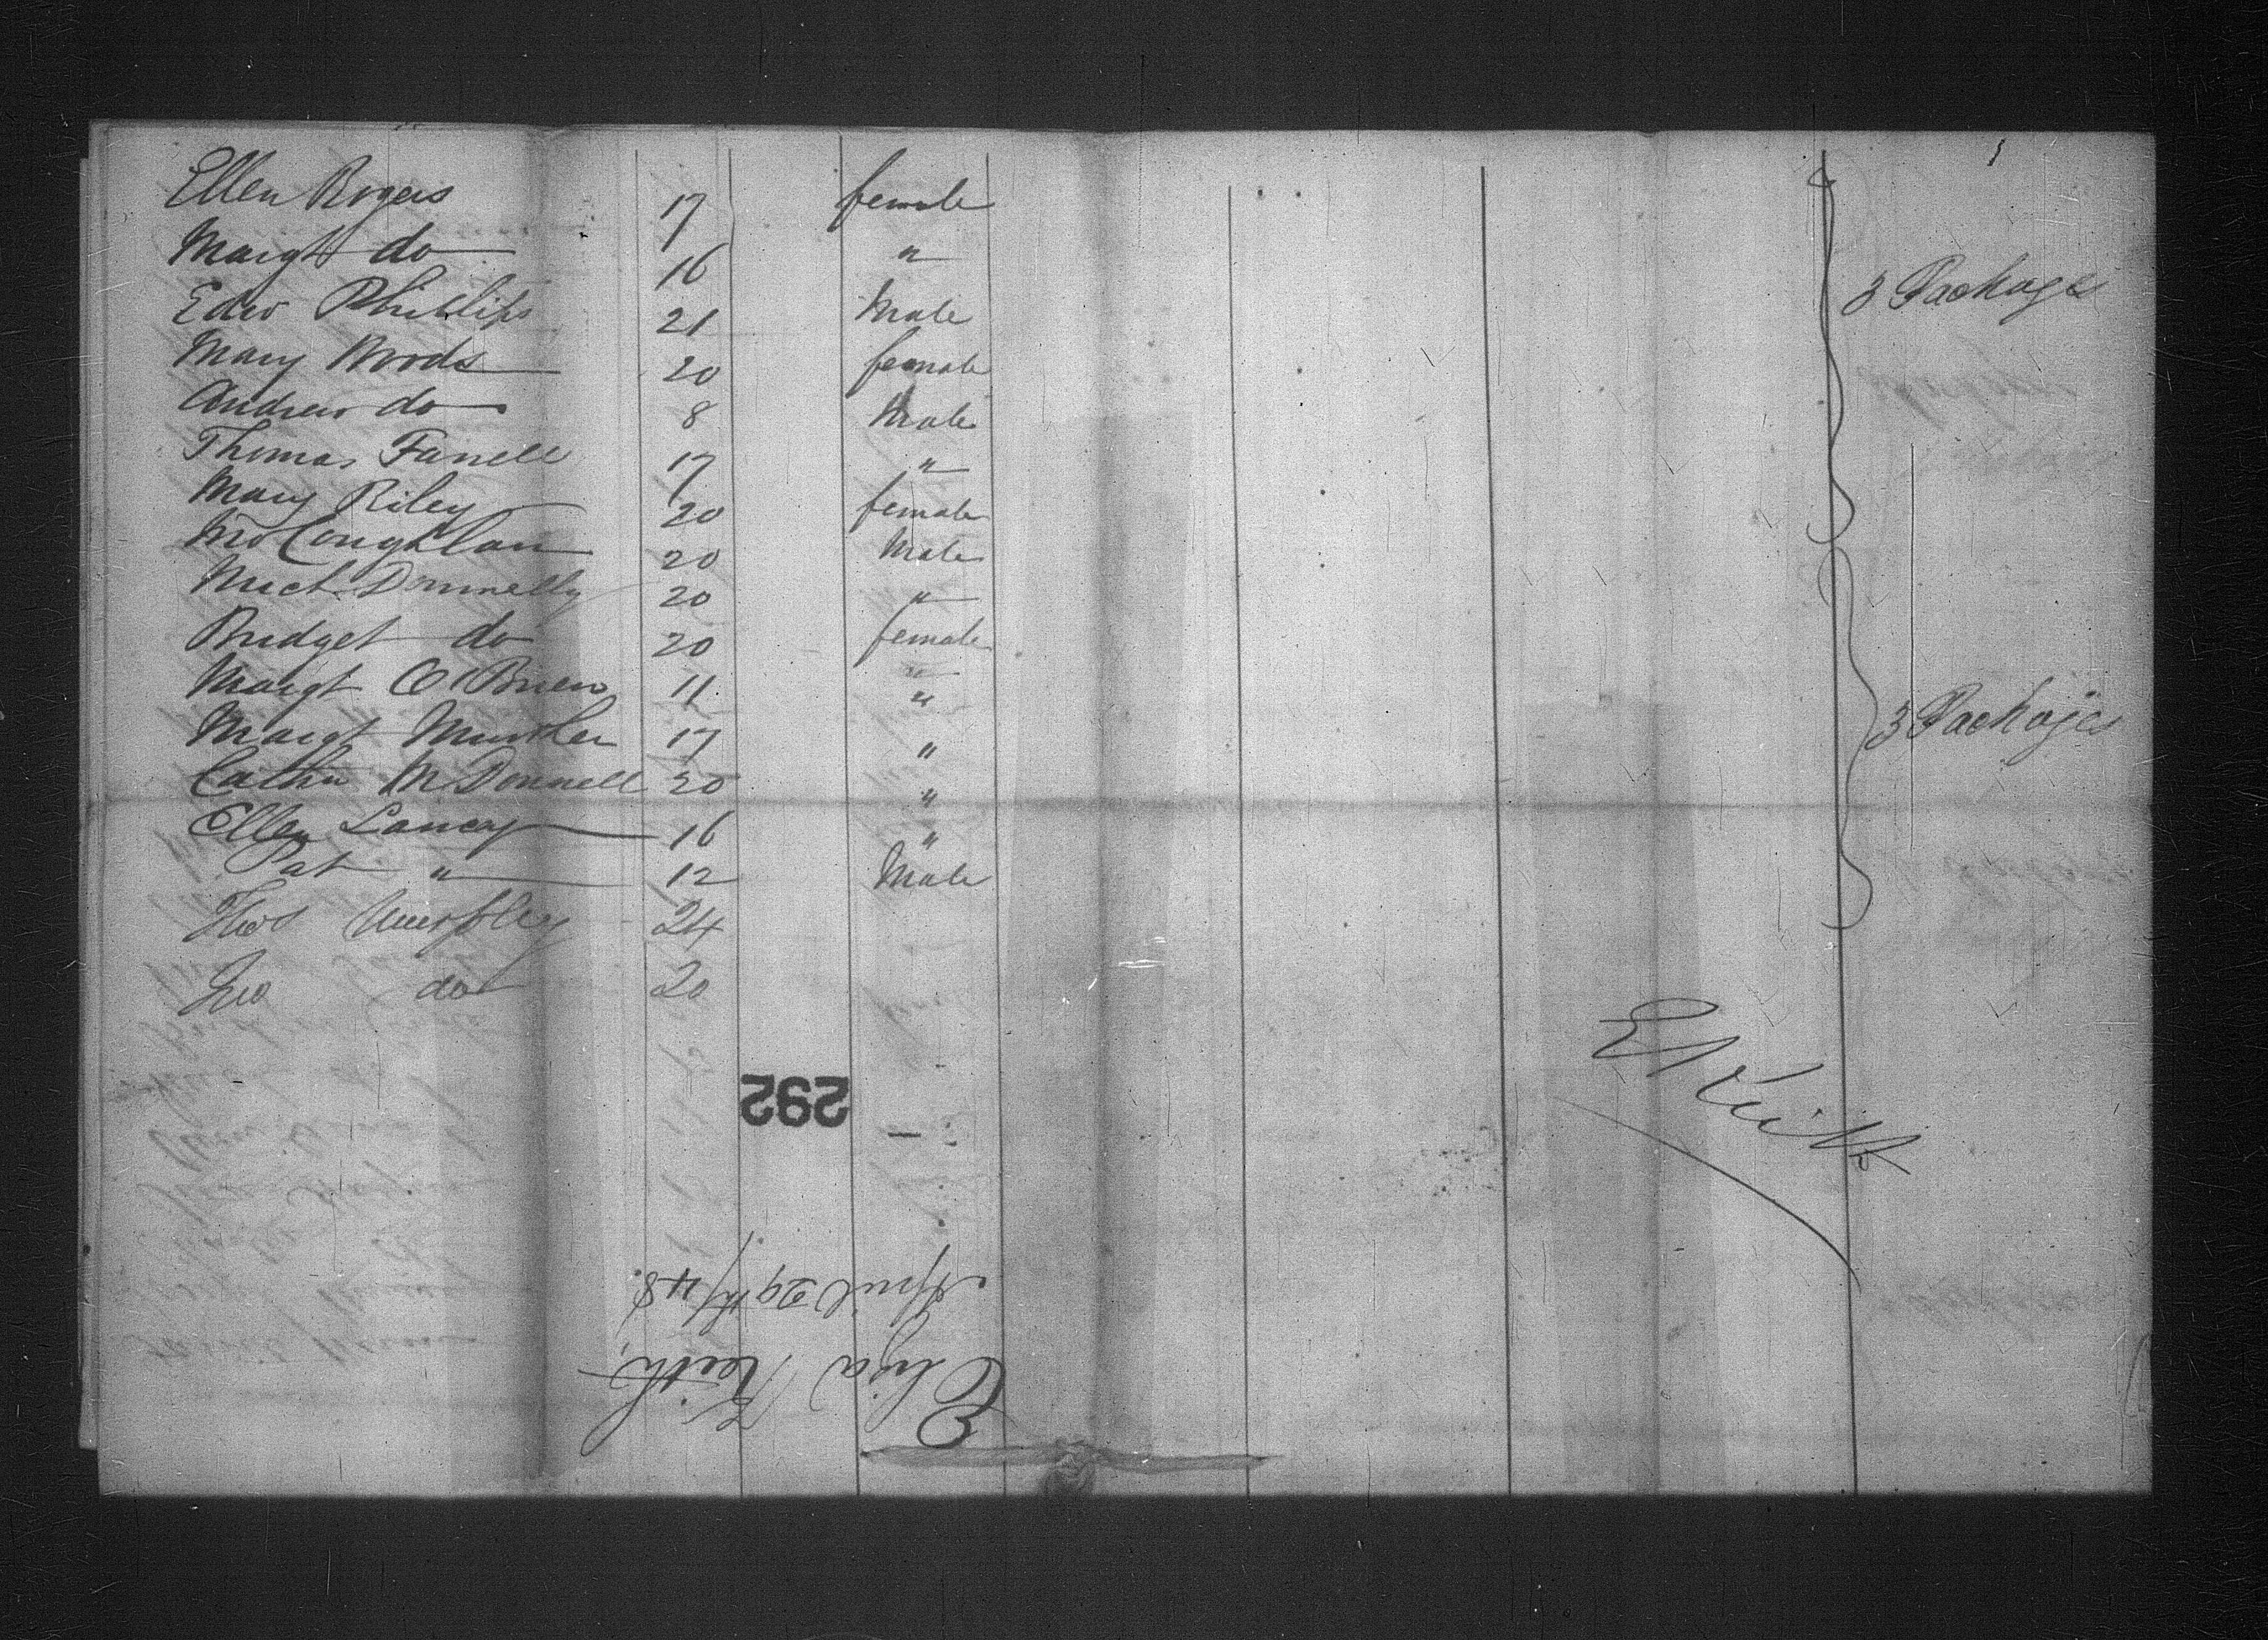 Ellen Rogers 17 female
Margt do 16 "
Edw Phillips 21 Male 3 Packages
Mary Woods 20 female
Andrew do 8 Male
Thomas Farrell 17 "
Mary Riley 20 female
Jno Coughlan 20 Male
Mich Donnelly 20 "
Bridget do 20 female
Margt O Brien 11 "
Margt 17 " 3 Packages
Cathn McDonnell 20 "
Ellen Lancey 16 "
Pat " 12 Male
Thos Murphy 24
Jno do 20
E Keith
292
April 29th/48.
Eliza Keith